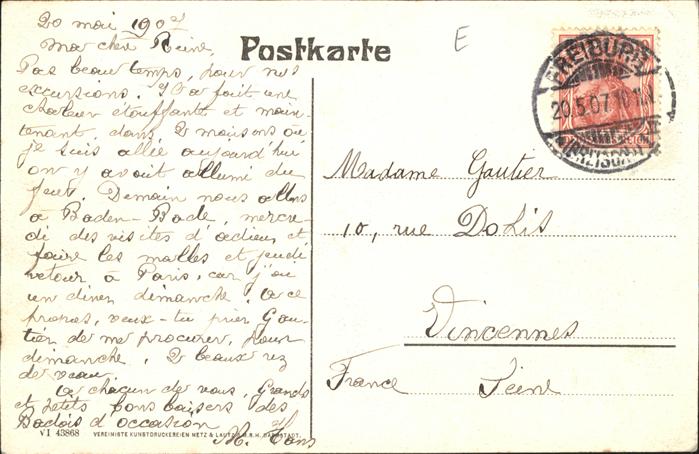 20 mai 1907
Ma chère Reine,
Pas beau temps, pour nos
excursions. Il a fait une
chaleur étouffante et main-
tenant, dans 2 maisons où
je suis allée aujourd'hui
on y avait allumé du
feu. Demain nous allons
à Baden-Bade, mercre-
di des visites d'adieu et
faire les malles et jeudi
retour à Paris, car j'ai
un diner dimanche. A ce
propos, veux-tu prier Gau-
tier de me procurer, pour
dimanche, 2 beaux riz
de veau.
A chacun de vous, Grands
et petits bons baisers des
Badois d'occasion
Postkarte
E
FREIBURG
20.5.07.10
(BREISGAU)
Madame Gautier
10, rue
Vincennes
France Seine
VI 43868 VEREINIGTE KUNSTDRUCKEREIEN METZ & LAUTZ G.M.B.H. DARMSTADT.